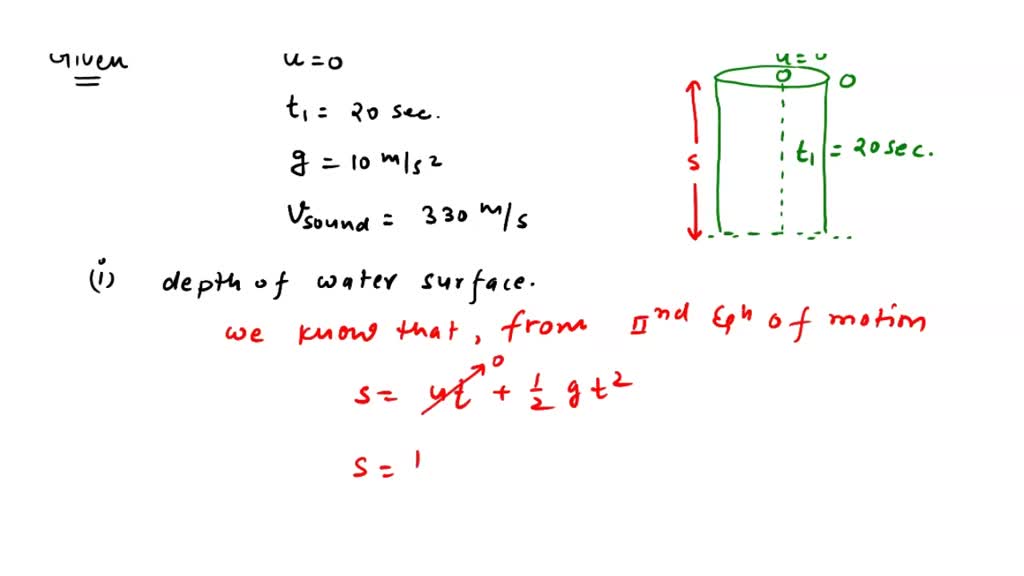 Given
u = 0
t₁ = 20 sec.
g = 10 m/s²
Vsound = 330 m/s
u = 0
0
S
t₁ = 20 sec.
(i) depth of water surface.
we know that, from IInd Eqn of motion
S = ut 0 + 1/2 g t²
S = 1